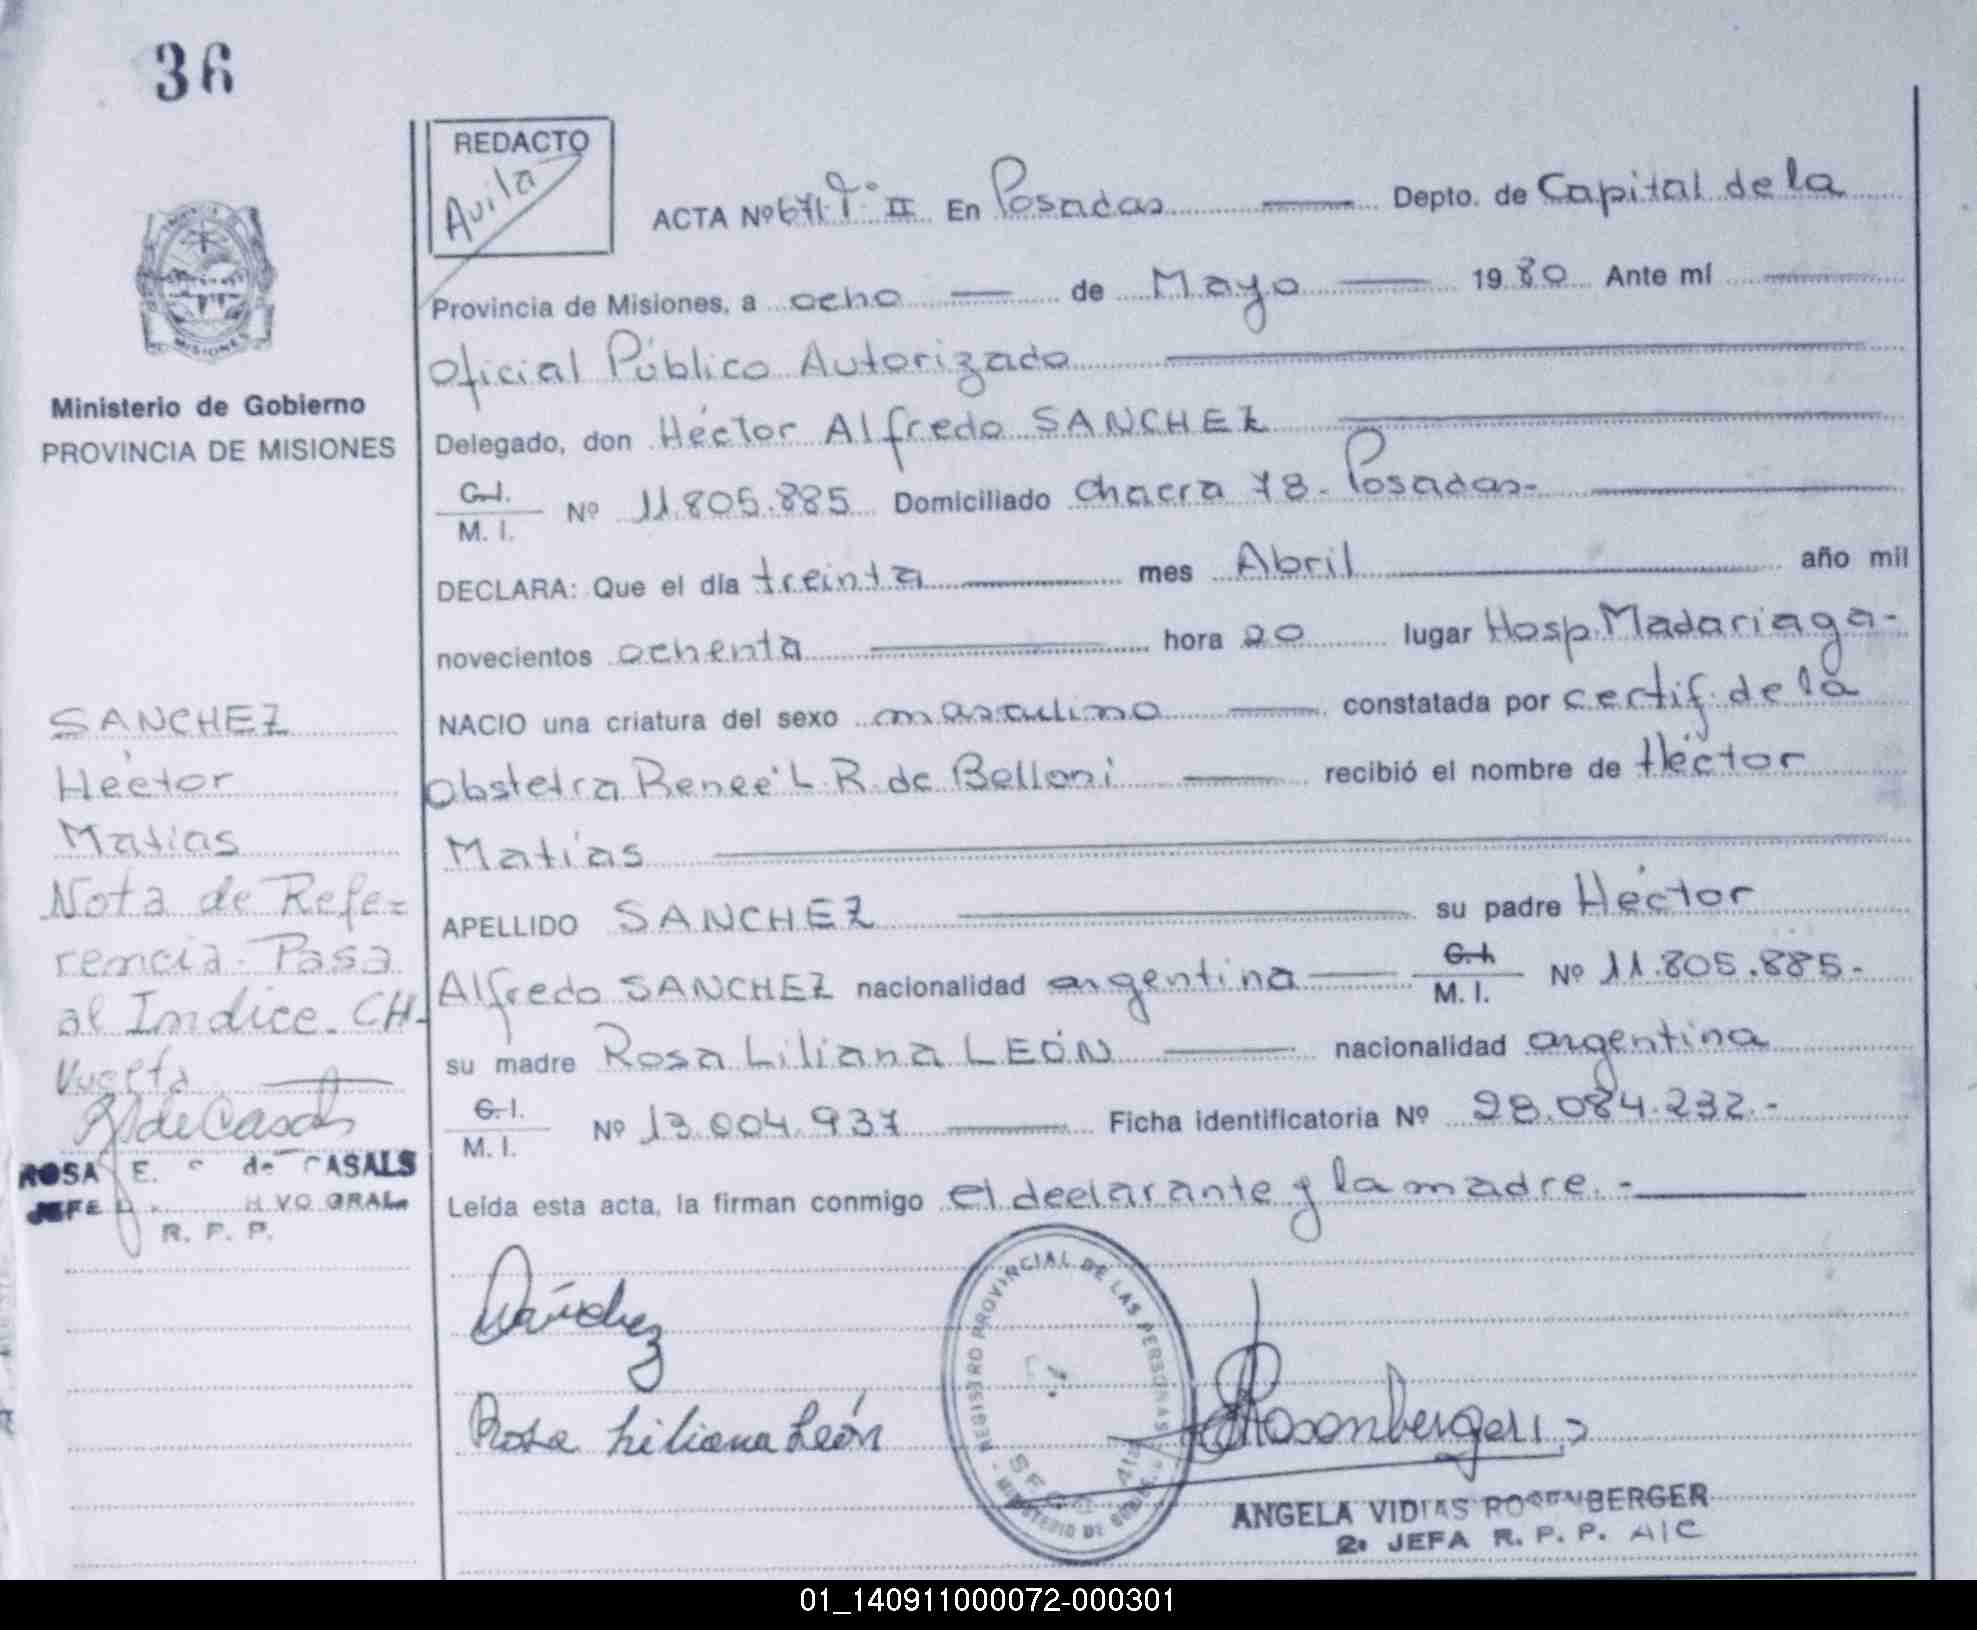 36
REDACTO
Avila
ACTA Nº 671 Tº II En Posadas Depto. de Capital de la
Provincia de Misiones, a ocho de Mayo 1980 Ante mí
Oficial Público Autorizado
Delegado, don Héctor Alfredo SANCHEZ
C.I.
M. I. Nº 11.805.885 Domiciliado Chacra 78 - Posadas-
DECLARA: Que el día treinta mes Abril año mil
novecientos ochenta hora 20 lugar Hosp. Madariaga-
NACIO una criatura del sexo masculino constatada por certif. de la
obstetra Renee L. R. de Belloni recibió el nombre de Héctor
Matías
APELLIDO SANCHEZ su padre Héctor
Alfredo SANCHEZ nacionalidad argentina C.I.
M. I. Nº 11.805.885.-
su madre Rosa Liliana LEÓN nacionalidad argentina
C.I.
M. I. Nº 13.004.937 Ficha identificatoria Nº 28.084.232.-
Leída esta acta, la firman conmigo el declarante y la madre.-
Sánchez
Rosa Liliana León
Rosenberger
REGISTRO PROVINCIAL DE LAS PERSONAS
MINISTERIO DE
ANGELA VIDIAS ROSENBERGER
2º JEFA R. P. P. A/C
MISIONES
Ministerio de Gobierno
PROVINCIA DE MISIONES
SANCHEZ
Héctor
Matías
Nota de Refe=
rencia - Pasa
al Indice - CH-
Vuelta
de Casals
ROSA E. de CASALS
JEFE GRAL.
R. P. P.
01_140911000072-000301